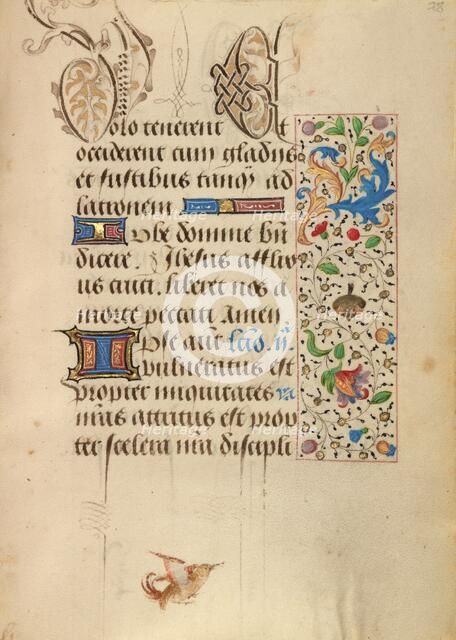 28
Dolo tenerent Et
occiderent cum gladiis
et fustibus tanq̃ ad
latronem
Jube domne bn̄
dicere. Jhesus
us liberet nos a
morte peccati Amen
Ipse aut̄ lc̄o. ii.
vulneratus est
propter iniquitates
attritus est prop
ter scelera nr̄a discipli
Heritage